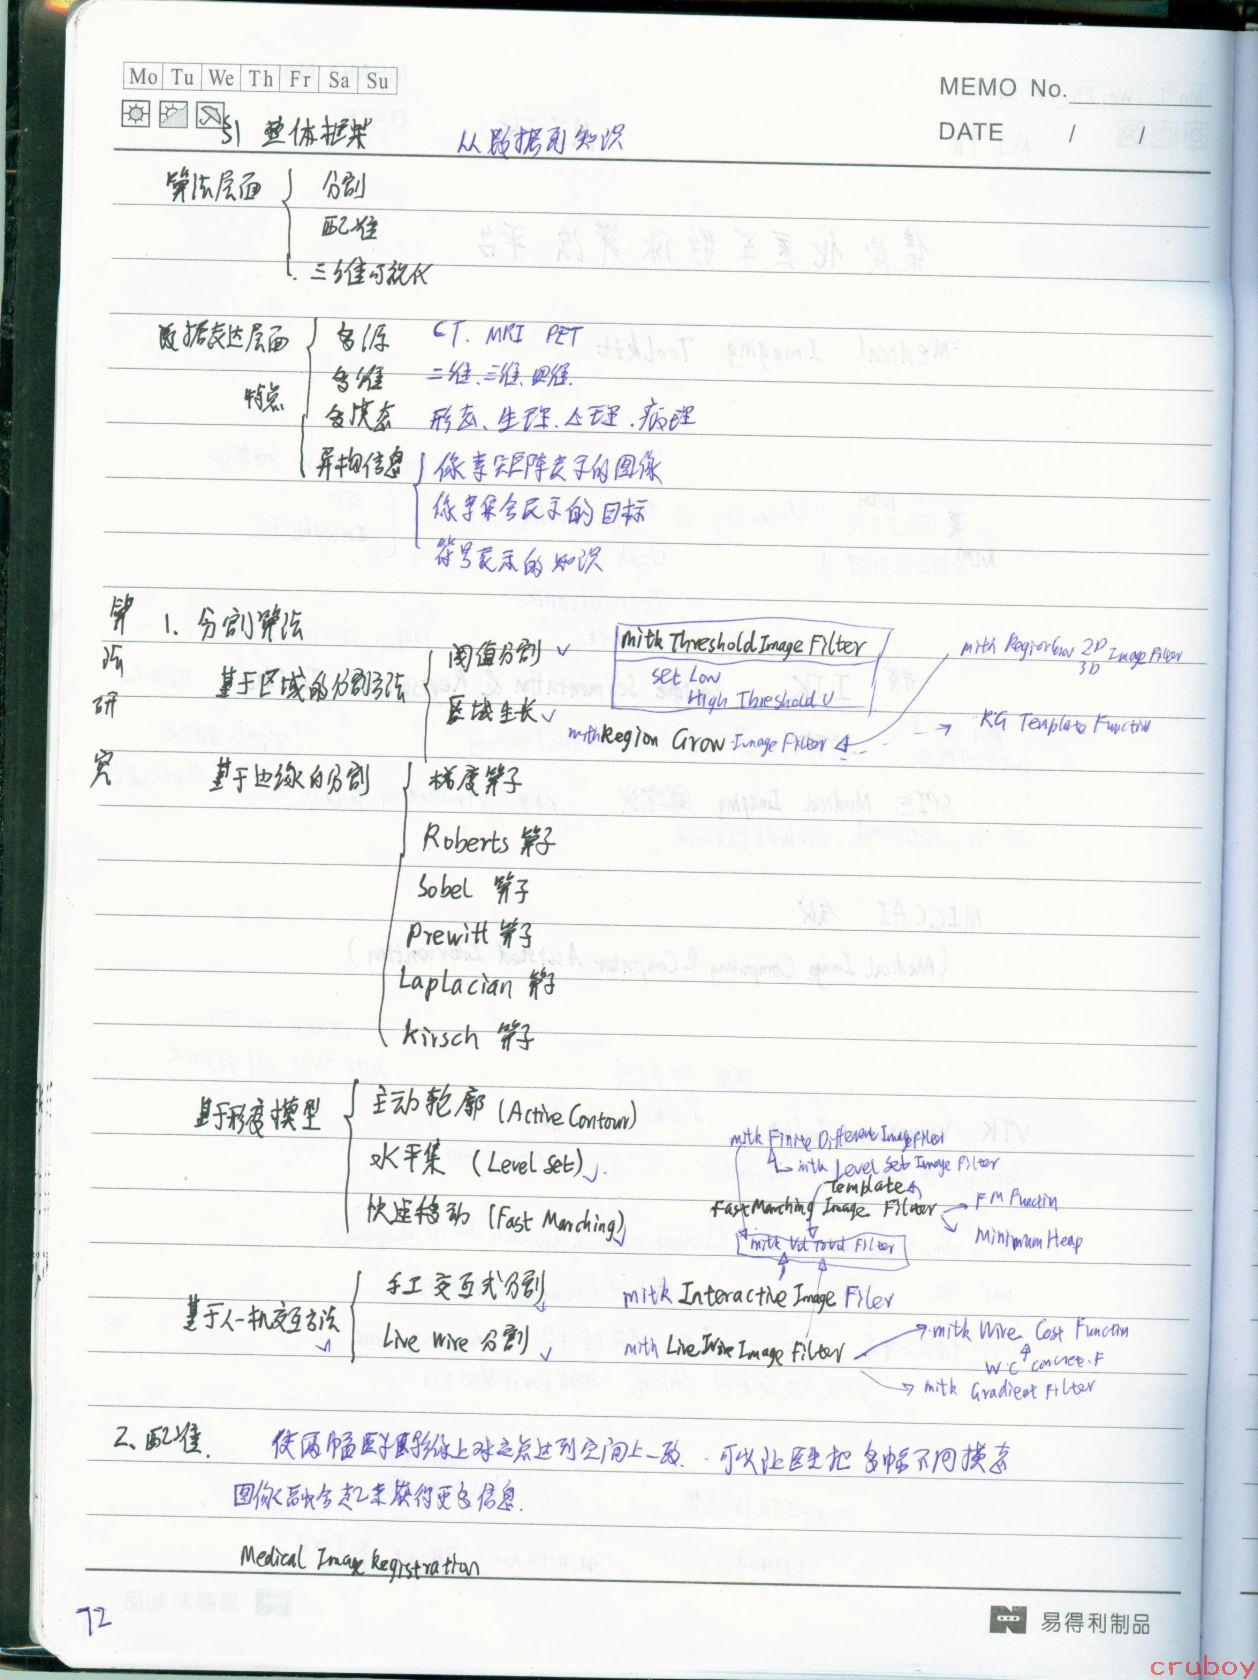 Mo Tu We Th Fr Sa Su
MEMO No.
DATE / /
S1 整体框架 从数据到知识
算法层面 分割
配准
三维可视化
数据表达层面 多源 CT. MRI PET
特点 多维 二维、三维、四维.
多模态 形态、生理、心理、病理
异构信息 像素矩阵表示的图像
像素集合表示的目标
符号表示的知识
算法研究
1. 分割算法
基于区域的分割方法 阈值分割 ✓ mitk Threshold Image Filter
set Low
High Threshold V
区域生长 ✓ mitk Region Grow Image Filter
mitk Region Grow 2D 3D Image Filter
RG Template Function
基于边缘的分割 梯度算子
Roberts 算子
Sobel 算子
Prewitt 算子
Laplacian 算子
Kirsch 算子
基于形变模型 主动轮廓 (Active Contour)
水平集 (Level Set) ✓
快速移动 (Fast Marching) ✓
mitk Finite Different Image Filter
mitk Level Set Image Filter
Template
Fast Marching Image Filter
FM Function
Minimum Heap
mitk Vol to Vol Filter
基于人-机交互方法 ✓ 手工交互式分割 ✓ mitk Interactive Image Filer
Live Wire 分割 ✓ mitk Live Wire Image Filter
mitk Wire Cost Function
W C concrete.F
mitk Gradient Filter
2. 配准. 使两幅医学图影像上对应点达到空间上一致. 可以让医生把多幅不同模态
图像融合起来获得更多信息.
Medical Image Registration
72
易得利制品
cruboy